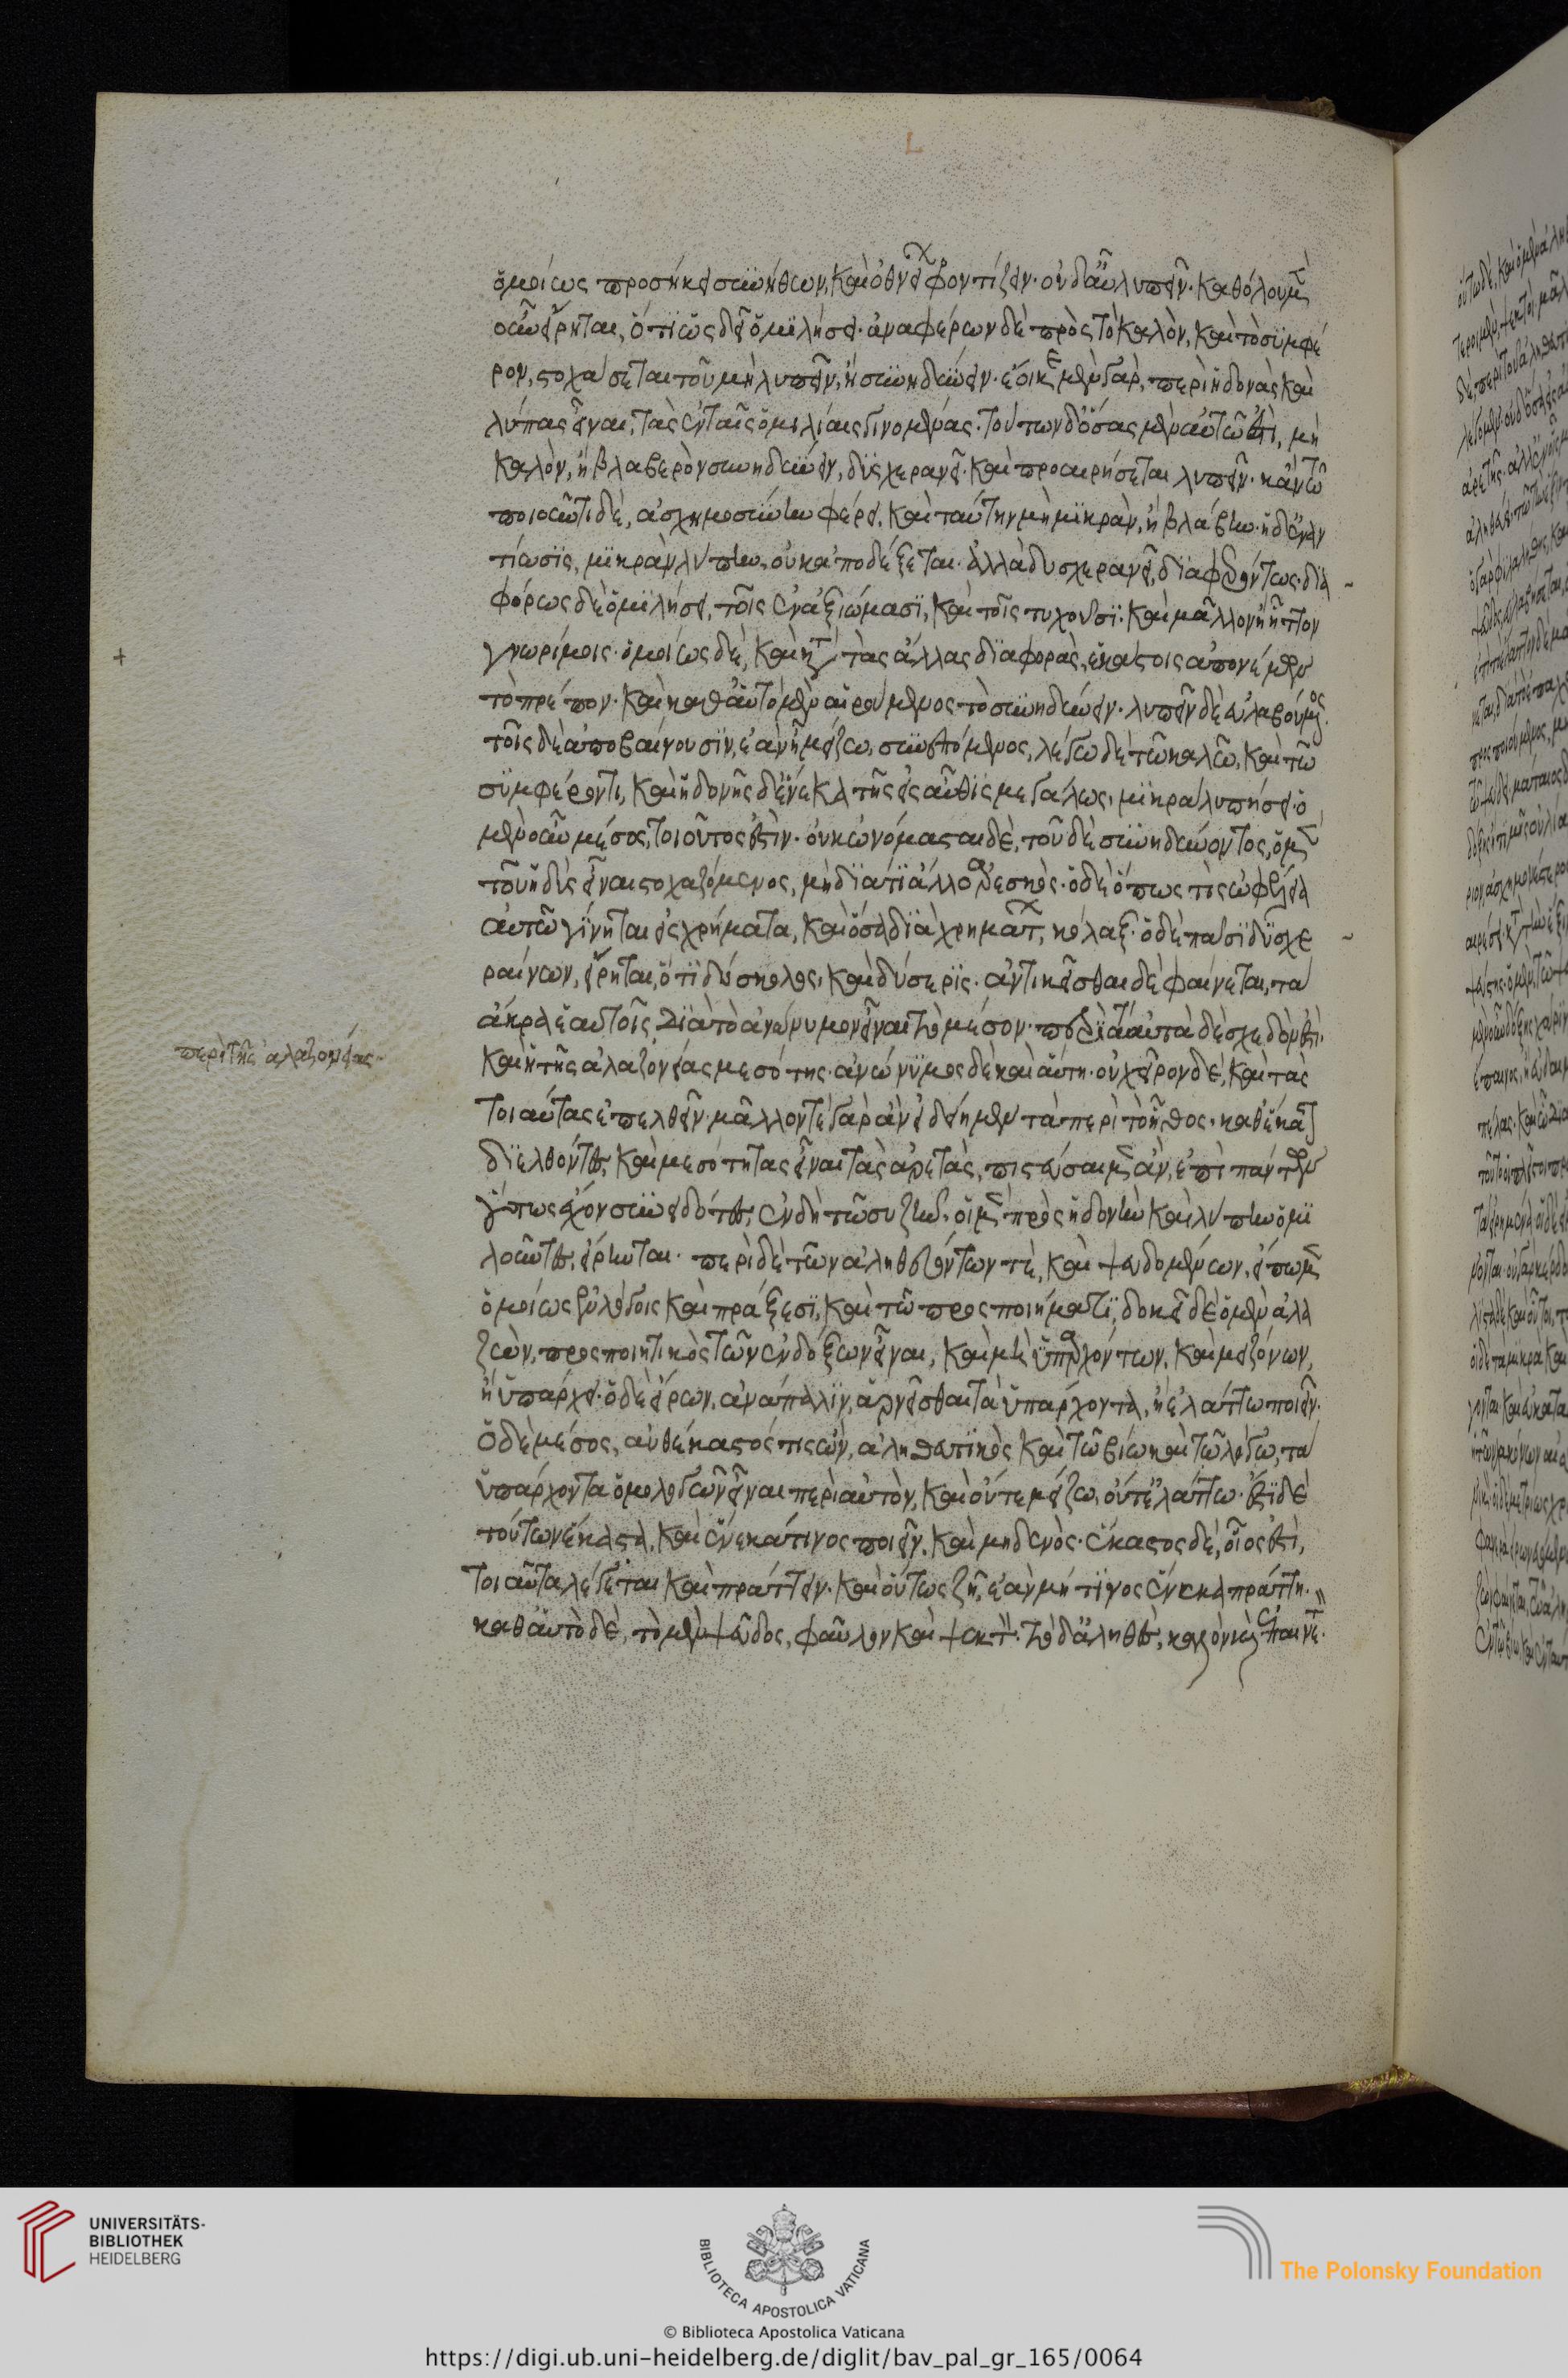 ὁμοίως προσήκει συνήθων, καὶ ὀθνείων φροντίζειν. οὐδ' αὖ λυπεῖν. καθόλου μὲν
οὖν εἴρηται, ὅτι ὡς δεῖ ὁμιλήσει. ἀναφέρων δὲ πρὸς τὸ καλὸν, καὶ τὸ συμφέ
ρον, στοχάσεται τοῦ μὴ λυπεῖν, ἢ συνηδύνειν. ἔοικε μὲν γὰρ, περὶ ἡδονὰς καὶ
λύπας εἶναι, τὰς ἐν ταῖς ὁμιλίαις γινομένας. τούτων δ' ὅσας μὲν αὐτῷ ἐστὶ, μὴ
καλὸν, ἢ βλαβερὸν συνηδύνειν, δυσχερανεῖ. καὶ προαιρήσεται λυπεῖν. κἂν τῷ
ποιοῦντι δὲ, ἀσχημοσύνην φέρει, καὶ ταύτην μὴ μικρὰν, ἢ βλάβην. ἡ δ' ἐναν
τίωσις, μικρὰν λύπην, οὐκ ἀποδέξεται. ἀλλὰ δυσχερανεῖ, διαφερόντως. δια
φόρως δὲ ὁμιλήσει, τοῖς ἐν ἀξιώμασι, καὶ τοῖς τυχοῦσι. καὶ μᾶλλον ἢ ἧττον
γνωρίμοις. ὁμοίως δὲ, καὶ κατὰ τὰς ἄλλας διαφορὰς, ἑκάστοις ἀπονέμων
τὸ πρέπον. καὶ καθ' αὑτὸ μὲν αἱρούμενος τὸ συνηδύνειν. λυπεῖν δὲ εὐλαβούμενος.
τοῖς δὲ ἀποβαίνουσιν, ἐὰν ᾖ μείζω, συνεπόμενος, λέγω δὲ τῷ καλῷ, καὶ τῷ
συμφέροντι, καὶ ἡδονῆς δ' ἕνεκα τῆς εἰσαῦθις μεγάλως, μικρὰ λυπήσει. ὁ
μὲν οὖν μέσος, τοιοῦτος ἐστὶν. οὐκ ὠνόμασται δὲ, τοῦ δὲ συνηδύνοντος, ὁ μὲν
τοῦ ἡδὺς εἶναι στοχαζόμενος, μὴ διά τι ἄλλο ἄρεσκος. ὁ δὲ ὅπως τις ὠφέλεια
αὐτῷ γίνηται εἰς χρήματα, καὶ ὅσα διὰ χρημάτων, κόλαξ. ὁ δὲ πᾶσι δυσχε
ραίνων, εἴρηται, ὅτι δύσκολος, καὶ δύσερις. ἀντικεῖσθαι δὲ φαίνεται, τὰ
ἄκρα ἑαυτοῖς, διὰ τὸ ἀνώνυμον εἶναι τὸ μέσον. περὶ τὰ αὐτὰ δὲ σχεδὸν ἐστὶ.
περὶ τῆς ἀλαζονείας.
καὶ ἡ τῆς ἀλαζονείας μεσότης. ἀνώνυμος δὲ καὶ αὕτη. οὐ χεῖρον δὲ, καὶ τὰς
τοιαύτας ἐπελθεῖν. μᾶλλόν τε γὰρ ἂν εἰδείημεν τὰ περὶ τὸ ἦθος, καθ' ἕκαστον
διελθόντες, καὶ μεσότητας εἶναι τὰς ἀρετὰς, πιστεύσαιμεν ἂν, ἐπὶ πάντων
οὕτως ἔχον συνειδότες, ἐν δὴ τῷ συζῆν. οἱ μὲν πρὸς ἡδονὴν καὶ λύπην ὁμι
λοῦντες, εἴρηνται. περὶ δὲ τῶν ἀληθευόντων τὲ, καὶ ψευδομένων, εἴπωμεν
ὁμοίως ἐν λόγοις καὶ πράξεσι, καὶ τῷ προσποιήματι, δοκεῖ δὲ ὁ μὲν ἀλα
ζὼν, προσποιητικὸς τῶν ἐνδόξων εἶναι, καὶ μὴ ὑπαρχόντων, καὶ μειζόνων,
ἢ ὑπάρχει. ὁ δὲ εἴρων, ἀνάπαλιν, ἀρνεῖσθαι τὰ ὑπάρχοντα, ἢ ἐλάττω ποιεῖν.
ὁ δὲ μέσος, αὐθέκαστός τις ὢν, ἀληθευτικὸς καὶ τῷ βίῳ καὶ τῷ λόγῳ, τὰ
ὑπάρχοντα ὁμολογῶν εἶναι περὶ αὐτὸν, καὶ οὔτε μείζω, οὔτε ἐλάττω. ἔστι δὲ
τούτων ἕκαστα, καὶ ἕνεκά τινος ποιεῖν, καὶ μηδενὸς. ἕκαστος δὲ, οἷος ἐστὶ,
τοιαῦτα λέγεται καὶ πράττειν. καὶ οὕτως ζῇ, ἐὰν μή τινος ἕνεκα πράττῃ.
καθ' αὑτὸ δὲ, τὸ μὲν ψεῦδος, φαῦλον καὶ ψεκτὸν. τὸ δ' ἀληθὲς, καλὸν καὶ ἐπαινετὸν.
UNIVERSITÄTS-
BIBLIOTHEK
HEIDELBERG
BIBLIOTECA APOSTOLICA VATICANA
The Polonsky Foundation
© Biblioteca Apostolica Vaticana
https://digi.ub.uni-heidelberg.de/diglit/bav_pal_gr_165/0064